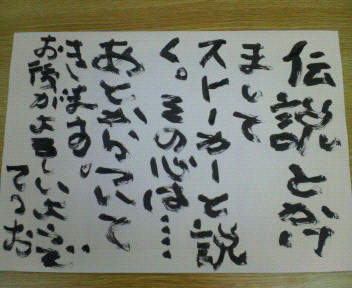 伝説とかけ
まして
ストーカーと説
く。その心は……
あとからついて
きします。
お後がよろしいようで
てつお